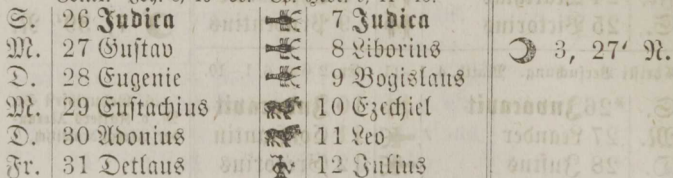 S. 26 Judica 7 Judica
M. 27 Gustav 8 Liborius ☽ 3, 27' N.
D. 28 Eugenie 9 Bogislaus
M. 29 Eustachius 10 Ezechiel
D. 30 Adonius 11 Leo
Fr. 31 Detlaus 12 Julius